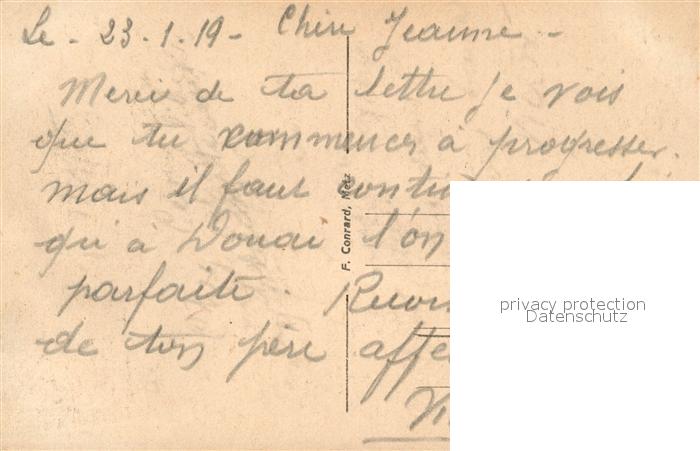 Le - 23 - 1 - 19 - Chère Jeanne -
Merci de ta lettre je vois
que tu commences à progresser.
mais il faut
qu'à Douai l'on
parfaite.
de ton père
F. Conrard, Metz
privacy protection
Datenschutz